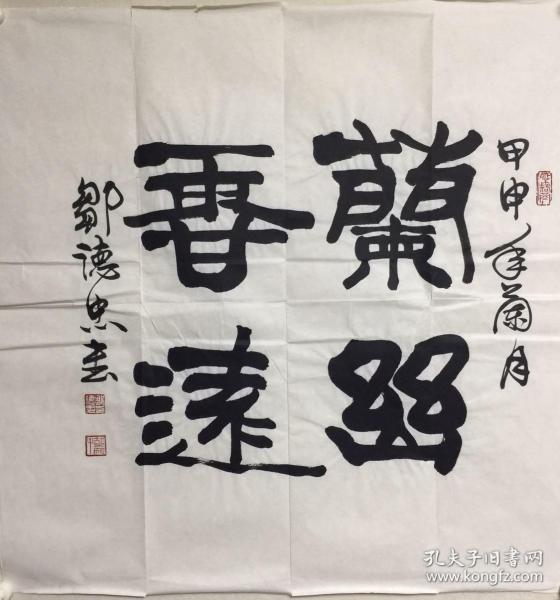 甲申年蘭月
蘭幽
香遠
鄒德忠書
孔夫子旧书网
www.kongfz.com